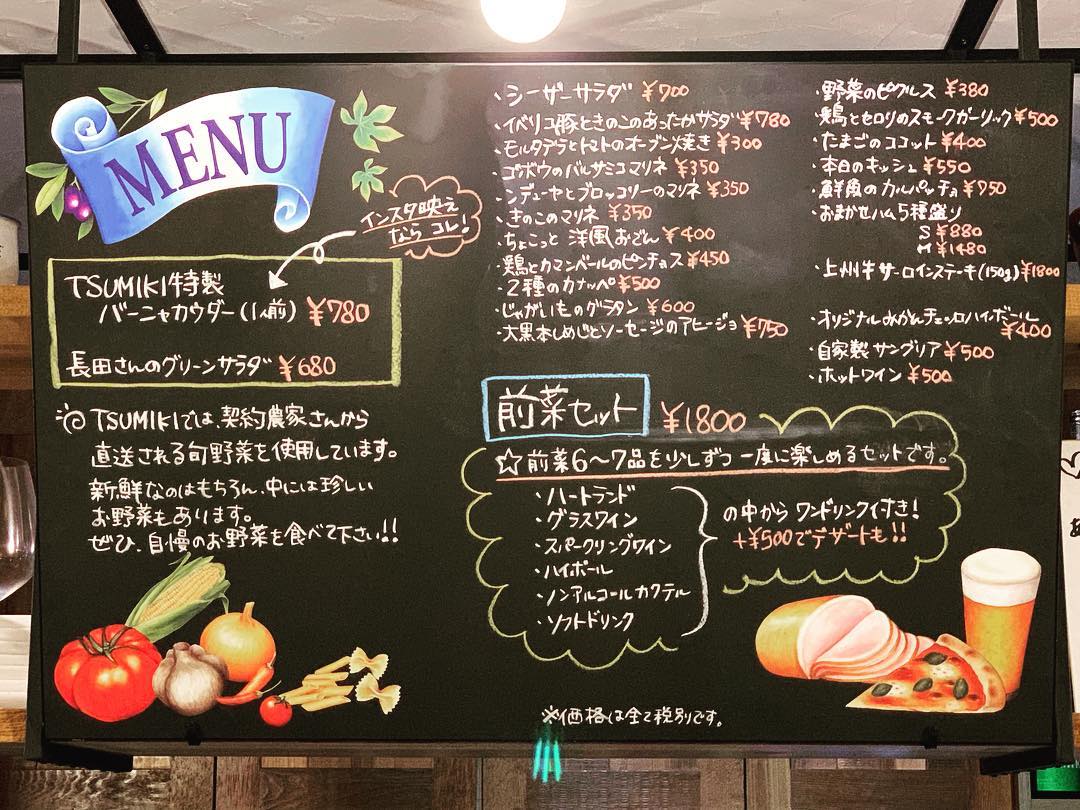 MENU
インスタ映え
なら コレ!
TSUMIKI特製
バーニャカウダー(1人前) ¥780
長田さんのグリーンサラダ ¥680
TSUMIKIでは、契約農家さんから
直送される旬野菜を使用しています。
新鮮なのはもちろん、中には珍しい
お野菜もあります。
ぜひ、自慢のお野菜を食べて下さい!!
・シーザーサラダ ¥700
・イベリコ豚ときのこのあったかサラダ ¥780
・モルタデラとトマトのオーブン焼き ¥300
・ゴボウのバルサミコマリネ ¥350
・ンデューヤとブロッコリーのマリネ ¥350
・きのこのマリネ ¥350
・ちょこっと 洋風おでん ¥400
・鶏とカマンベールのピンチョス ¥450
・2種のカナッペ ¥500
・じゃがいものグラタン ¥600
・大黒本しめじとソーセージのアヒージョ ¥750
・野菜のピクルス ¥380
・鶏とセロリのスモークガーリック ¥500
・たまごのココット ¥400
・本日のキッシュ ¥550
・鮮魚のカルパッチョ ¥750
・おまかせハム5種盛り
S ¥880
M ¥1480
・上州牛サーロインステーキ(150g) ¥1800
・オリジナルみかんチェッロハイボール
¥400
・自家製サングリア ¥500
・ホットワイン ¥500
前菜セット ¥1800
☆前菜6〜7品を少しずつ一度に楽しめるセットです。
・ハートランド
・グラスワイン
・スパークリングワイン
・ハイボール
・ノンアルコールカクテル
・ソフトドリンク
の中から ワンドリンク付き!
+¥500でデザートも!!
※価格は全て税別です。